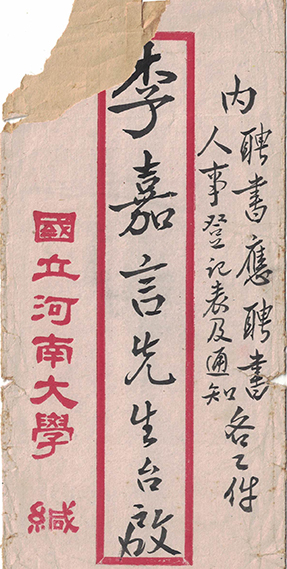 内聘書應聘書各乙件
人事登记表及通知
李嘉言先生台啟
國立河南大學 緘